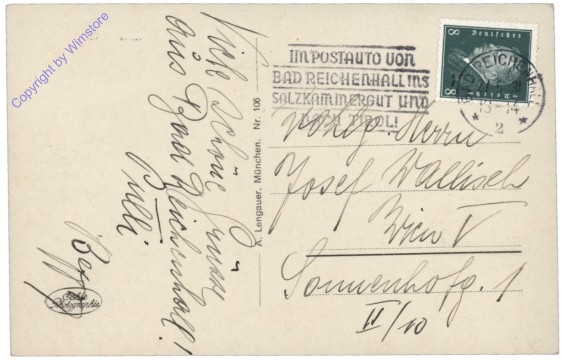 Copyright by Wimstore
Viele schöne Grüsse
aus Bad Reichenhall!
A. Lengauer, München. Nr. 106
IM POSTAUTO VON
BAD REICHENHALL INS
SALZKAMMERGUT UND
NACH TIROL!
8 Deutsches 8
8
BAD REICHENHALL
13-14
* 2 *
Herrn
Josef Wallisch
Wien V
Sonnenhofg. 1
II/10
Echte
Photographie